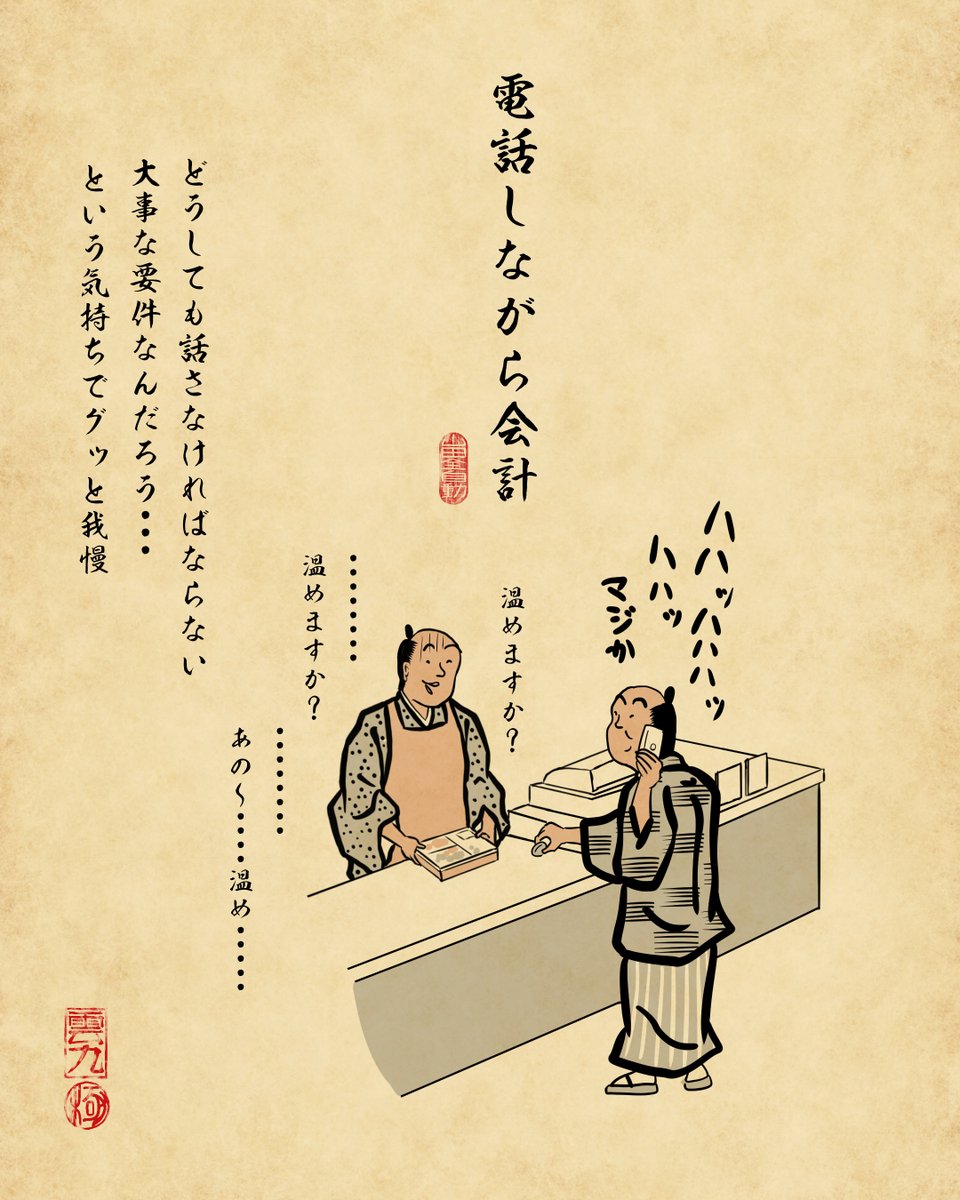 電話しながら会計
ハハッハハハッ
ハハッ
マジか
温めますか?
・・・・・・・・
温めますか?
・・・・・・・・
あの〜・・・・温め・・・・・
どうしても話さなければならない
大事な要件なんだろう・・・
という気持ちでグッと我慢